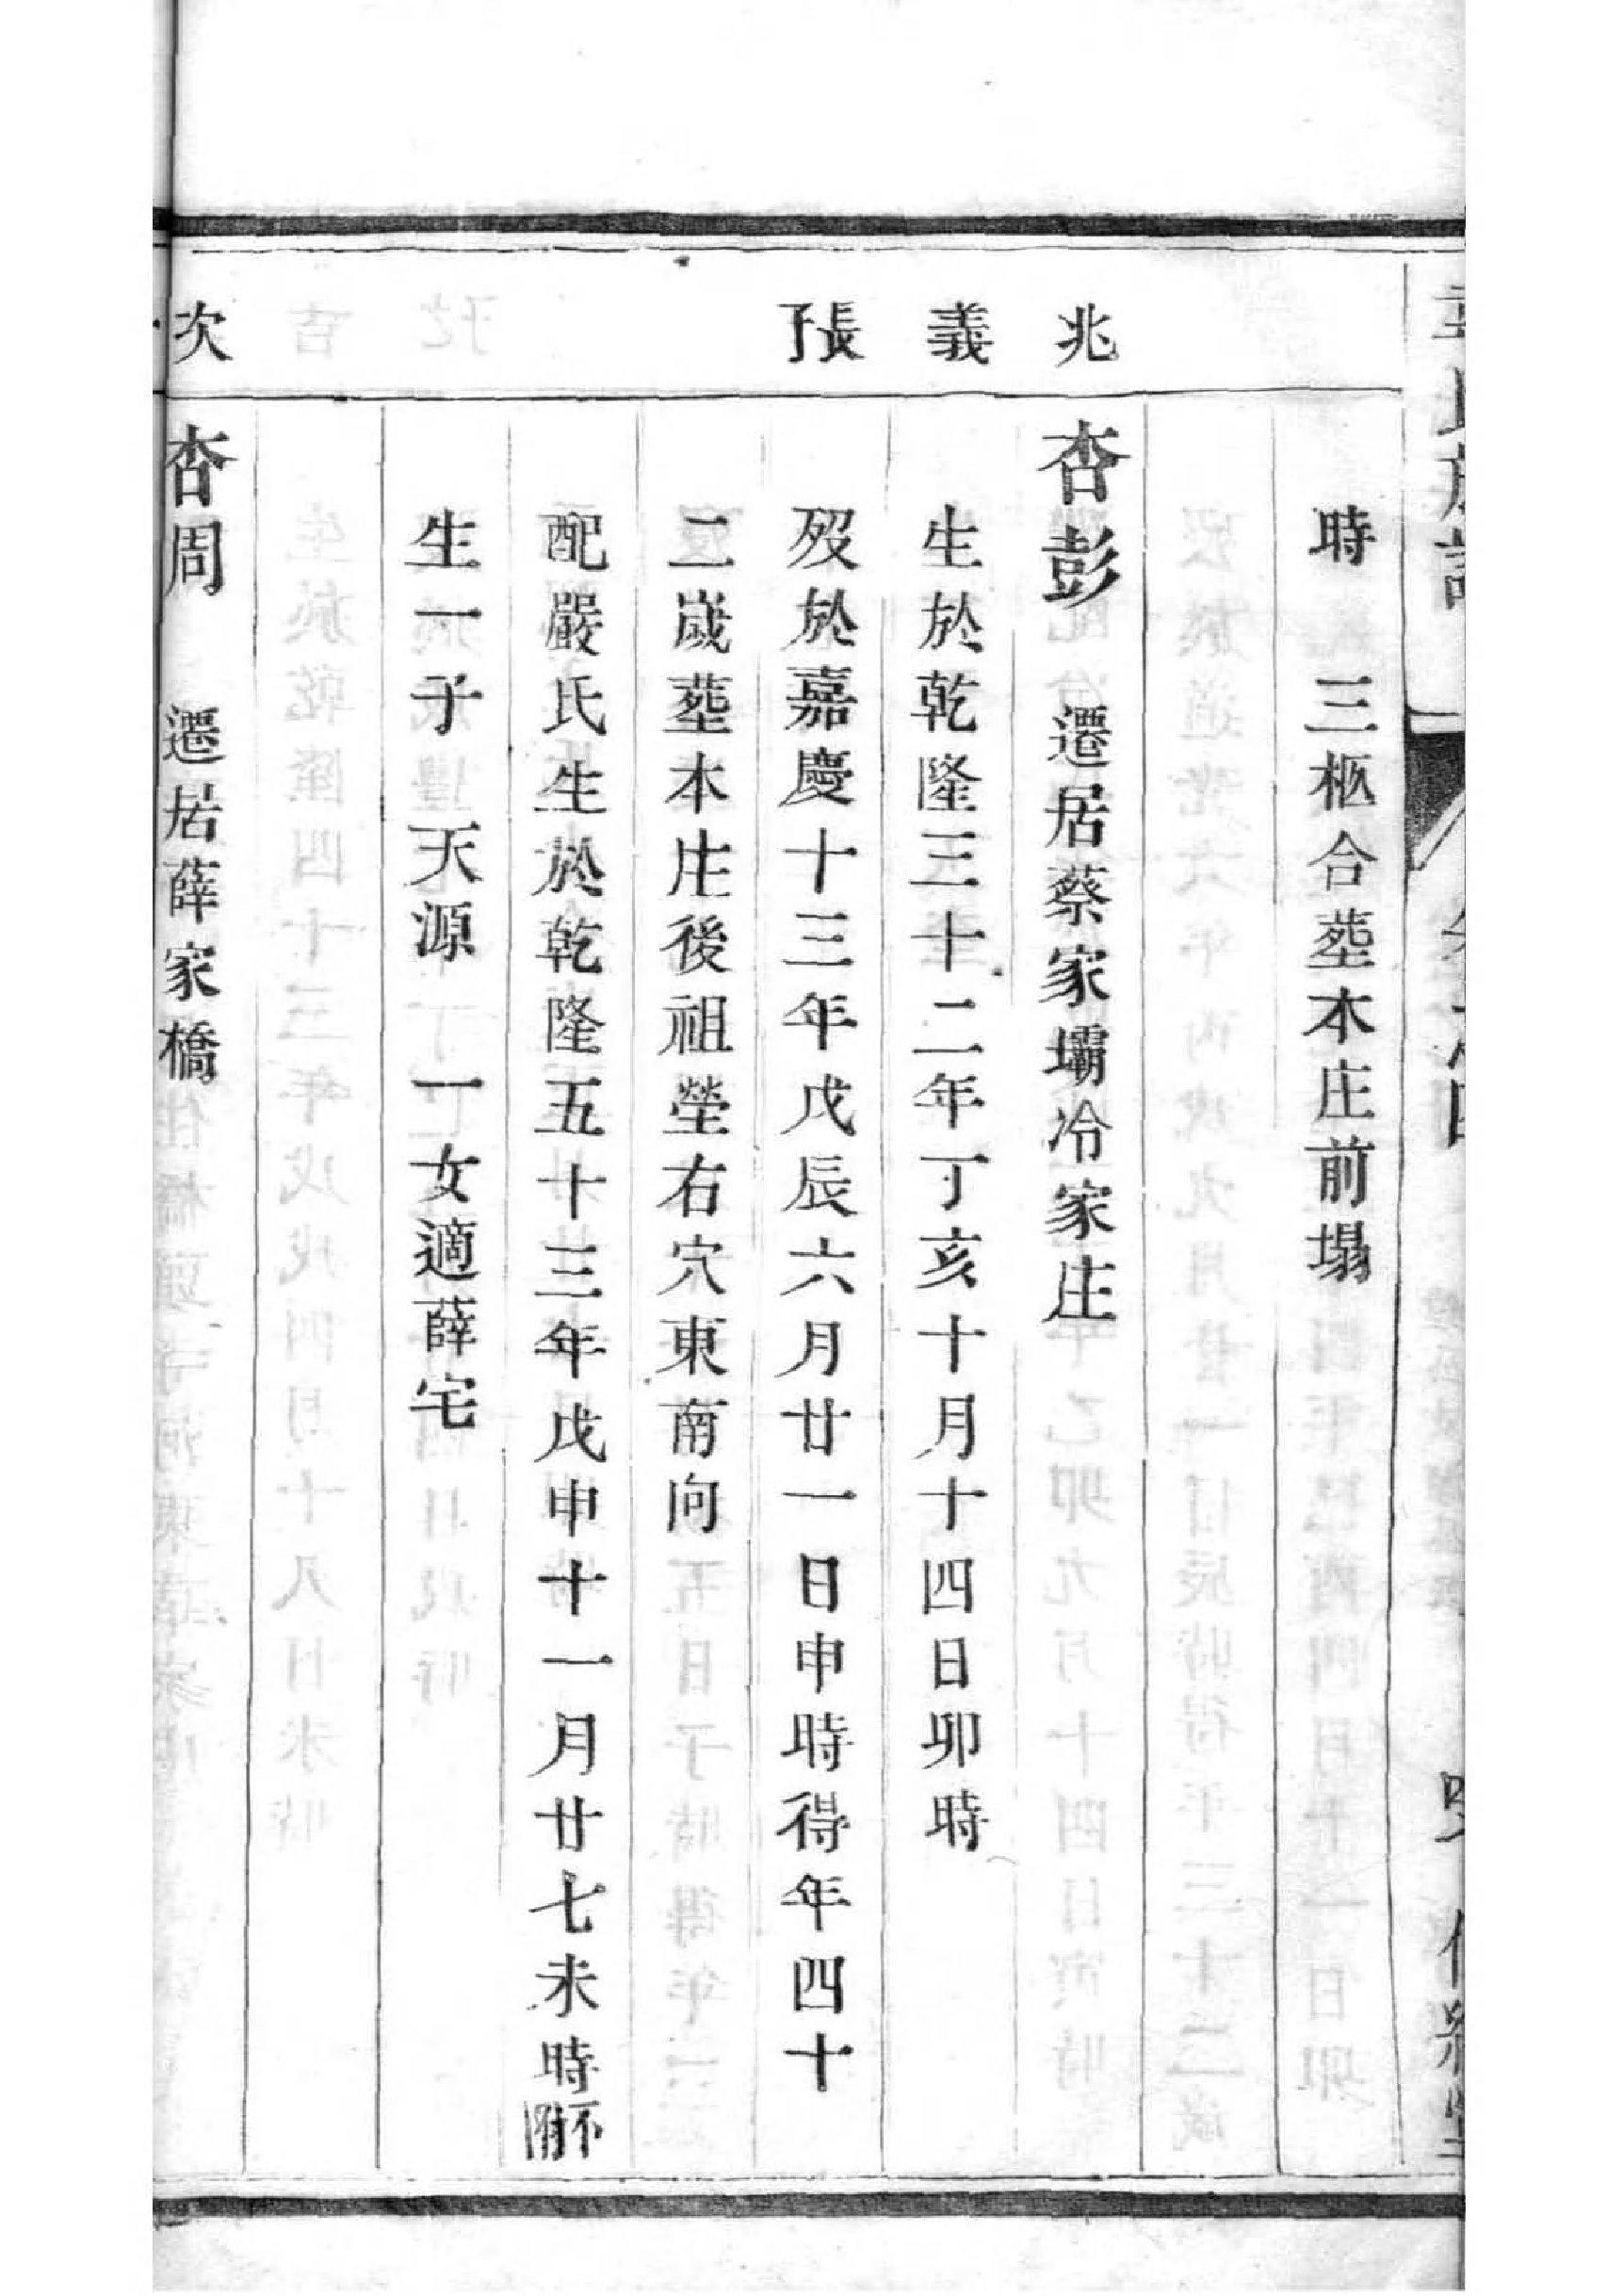 時　三柩合塟本庄前塌
兆
杏彭　遷居蔡家壩冷家庄
義
生於乾隆三十二年丁亥十月十四日卯時
張子
歿於嘉慶十三年戊辰六月廿一日申時得年四十
二歲塟本庄後祖塋右穴東南向
配嚴氏生於乾隆五十三年戊申十一月廿七未時
生一子　天源　一女適薛宅
次
杏周　遷居薛家橋